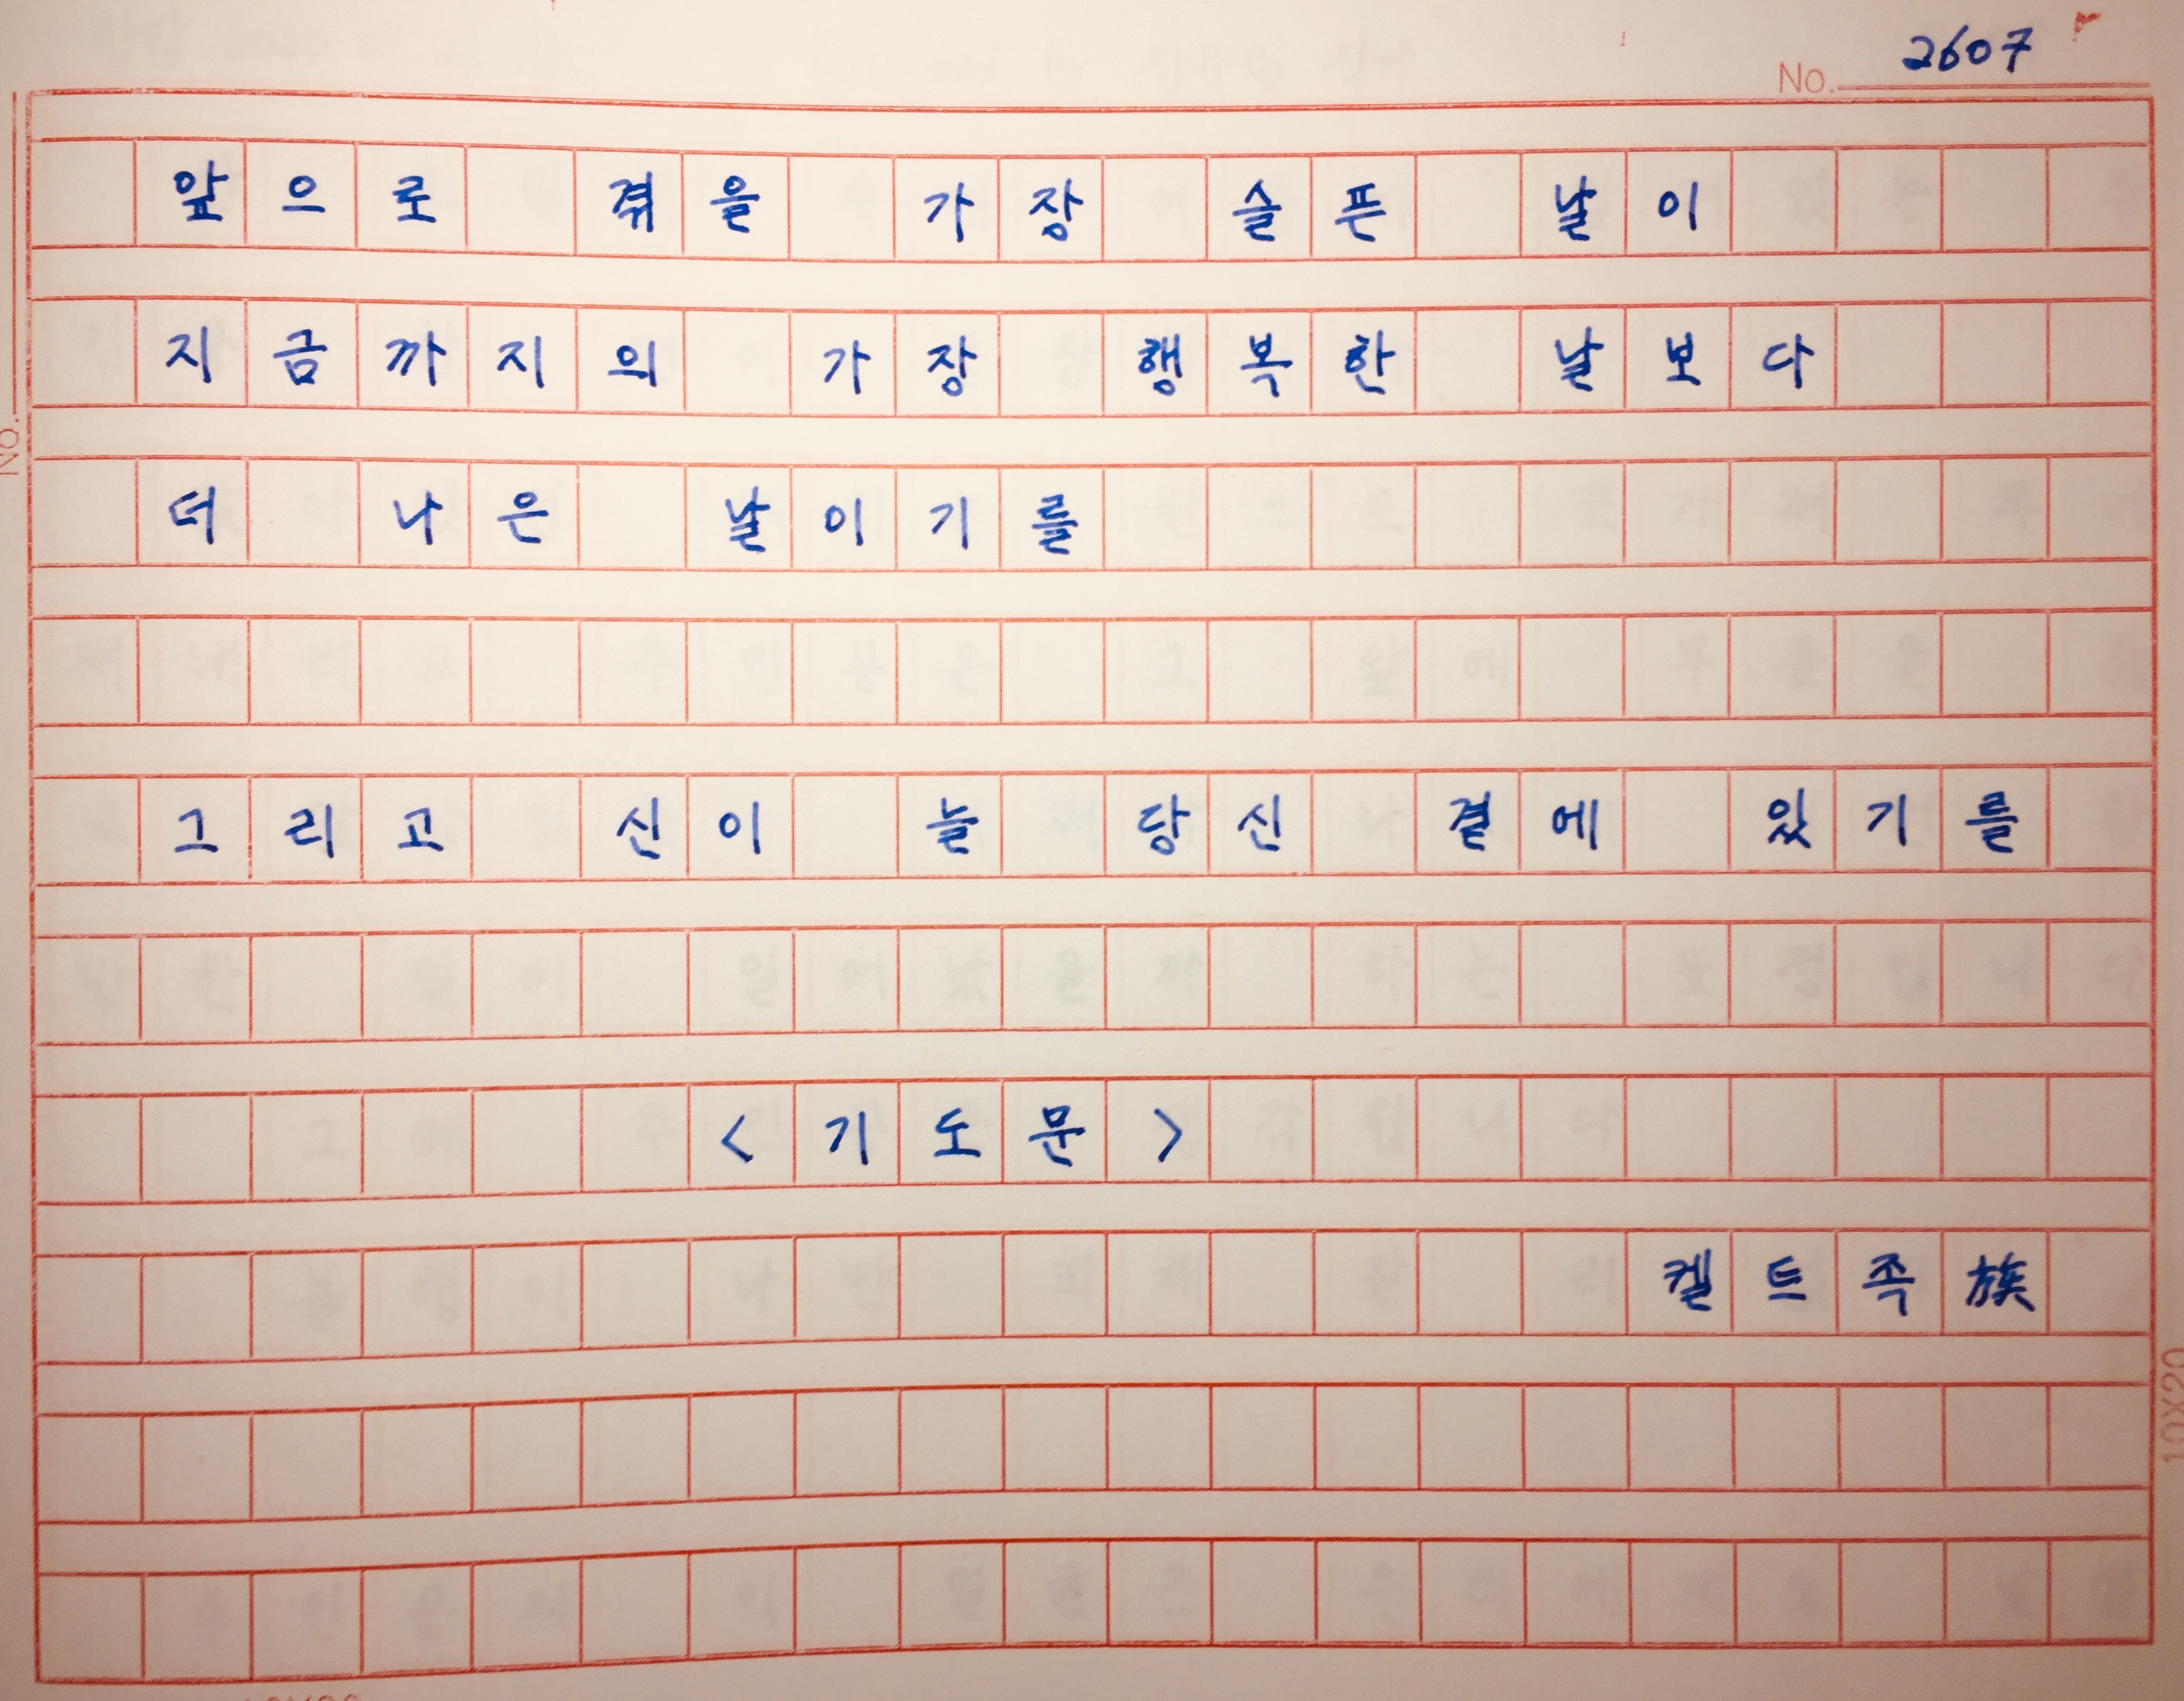 No. 2607
앞으로 겪을 가장 슬픈 날이
지금까지의 가장 행복한 날보다
더 나은 날이기를
그리고 신이 늘 당신 곁에 있기를
<기도문>
켈트족族
No.
10X20